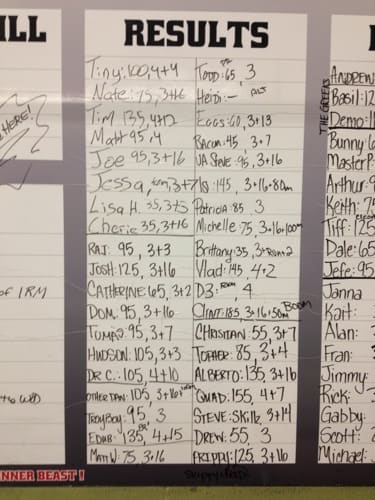 ILL
HERE!
of IRM
to WD
NNER BEAST!
RESULTS
Tiny: 100, 4+4
Nate: 95, 3+16
Tim 135, 4+12
Matt 95, 4
Joe 95, 3+16
Jessa, 3+7
Lisa H. 35, 3+3
Cherie 35, 3+16
RAJ: 95, 3+3
JOSH: 125, 3+16
CATHERINE: 65, 3+2
DOM: 95, 3+16
95, 3+7
HUDSON: 105, 3+3
DR C: 105, 4+10
OTHER DAN: 105, 3+16
TROYBOY: 95, 3
EDDIE: 135, 4+15
MATT W: 75, 3+16
TODD: 65, 3
Heidi: —
EGGS: 60, 3+13
BACON: 45, 3+7
VA STEVE: 95, 3+16
145, 3+16+80m
Patricia: 85 3
Michelle: 75, 3+16+100m
Brittany: 35, 3+Run+2
Vlad: 145, 4+2
D3: 4
CLINT: 185, 3+16+50m BOOM
CHRISTIAN: 55, 3+7
TOPHER: 85, 3+4
ALBERTO: 135, 3+16
QUAD: 155, 4+7
STEVE: SKILLZ, 3+14
DREW: 55, 3
FRIPPI: 125, 3+16
THE GREEKS
ANDREW
Basil: 12
Demo: 1
Bunny: 6
Master P
Arthur: 9
Keith: 75
Tiff: 125
Dale: 65
Jefe: 95
Janna
Kart:
Alan:
Fran:
Jimmy:
Rick:
Gabby:
Scott:
Michael: